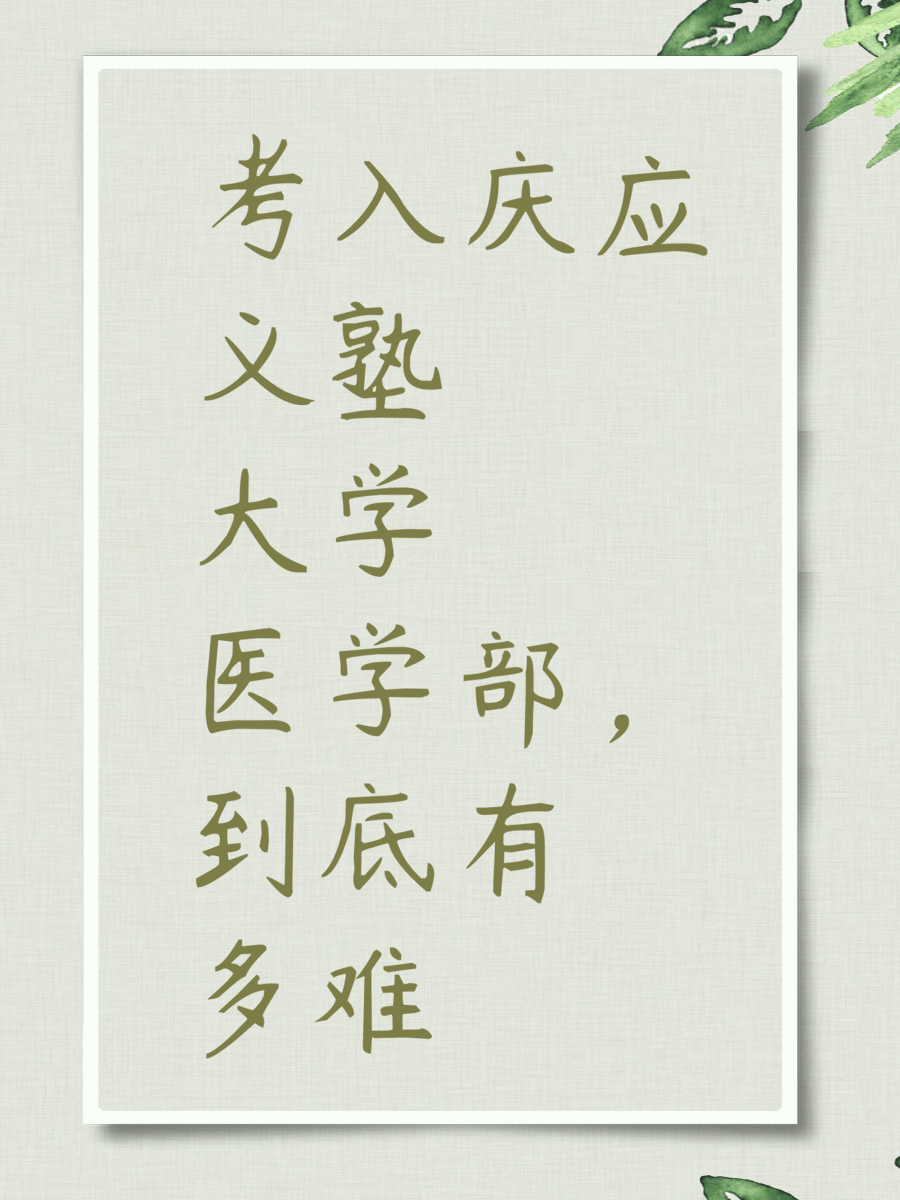 考入庆应
义塾
大学
医学部，
到底有
多难